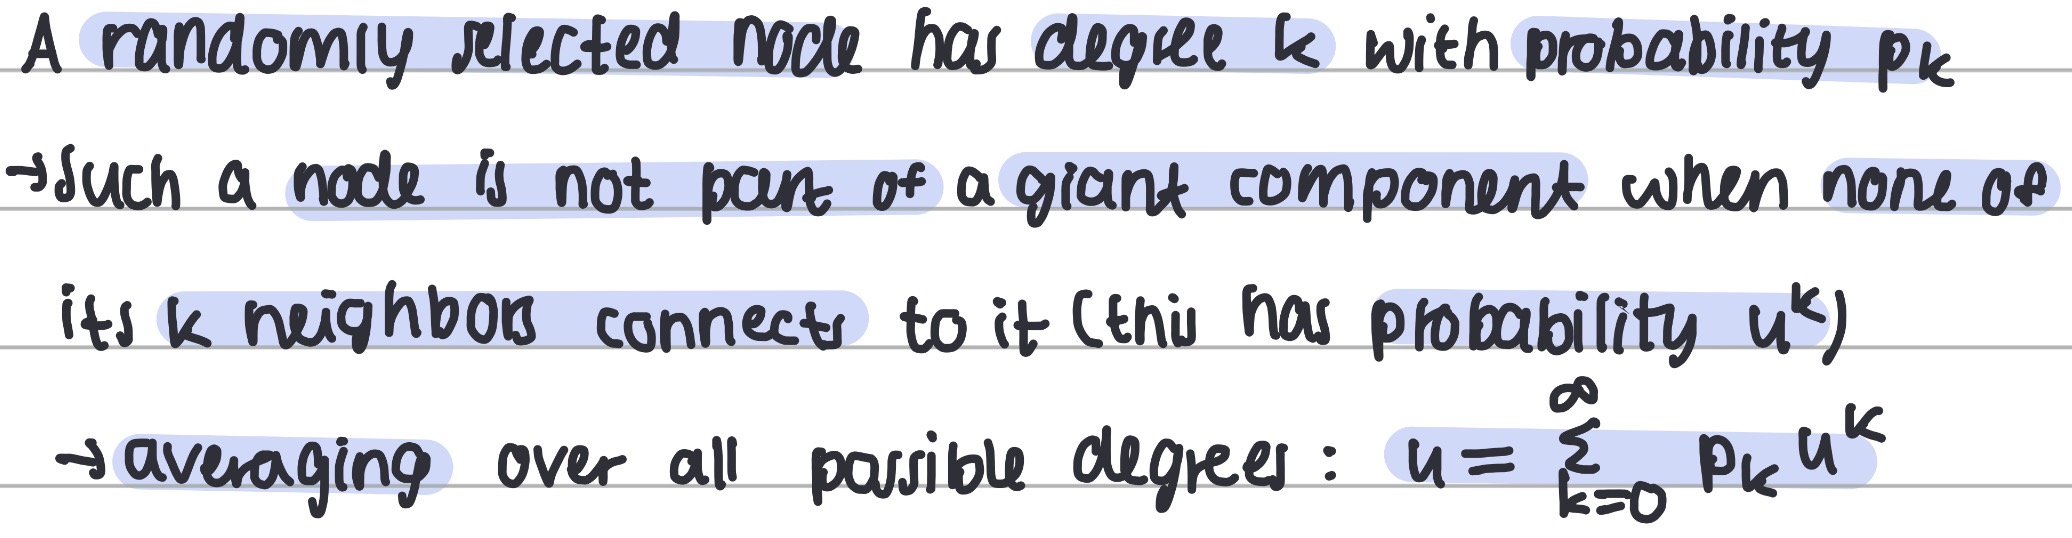 A randomly selected node has degree k with probability pₖ
→ Such a node is not part of a giant component when none of
its k neighbors connects to it (this has probability uᵏ)
→ averaging over all possible degrees : u = ∑_{k=0}^{∞} pₖ uᵏ